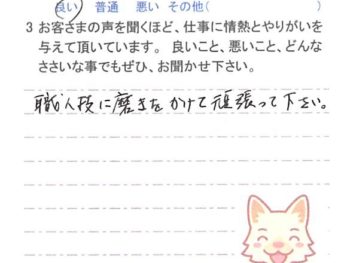 良い 普通 悪い その他( )
3 お客さまの声を聞くほど、仕事に情熱とやりがいを
与えて頂いています。 良いこと、悪いこと、どんな
ささいな事でもぜひ、お聞かせ下さい。
職人技に磨きをかけて頑張って下さい。